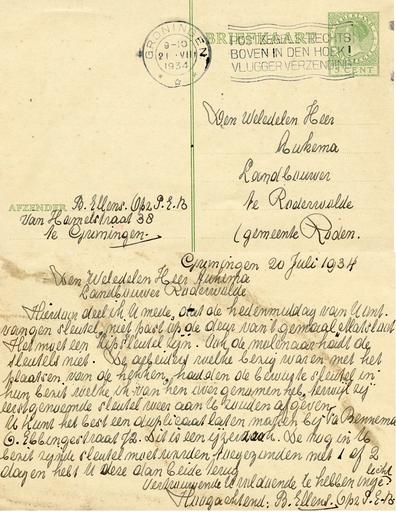 GRONINGEN
9-10
21 VII
1934
BRIEFKAART
POSTZEGEL RECHTS
BOVEN IN DEN HOEK!
VLUGGER VERZENDING
5 CENT
Den Weledelen Heer
Aukema
Landbouwer
te Roderwolde
(gemeente Roden.
AFZENDER
B. Ellens. Opz. P.E.B
van Hamelstraat 38
te Groningen.
Groningen 20 Juli 1934
Den Weledelen Heer Aukema
Landbouwer Roderwolde
Hierdoor deel ik U mede, dat de hedenmiddag van U ont
vangen sleutel, niet past op de deur van 't gemaal Matsloot
Het moet een lipsleutel zijn. Ook de molenaar had de
sleutels niet. De arbeiders welke bezig waren met het
plaatsen van de hekken, hadden de bewuste sleutel in
hun bezit welke ik van hen overgenomen heb, terwijl zij
eerstgenoemde sleutel weer aan U zouden afgeven
U kunt het best een duplicaat laten maken bij Bennema
Ebbingestraat 72. Dit is een ijzerzaak. De nog in U
bezit zijnde sleutel moet worden toegezonden met 1 of 2
dagen hebt U deze dan beide terug
Vertrouwende U voldoende te hebben inge
licht
Hoogachtend: B. Ellens. Opz. P.E.B